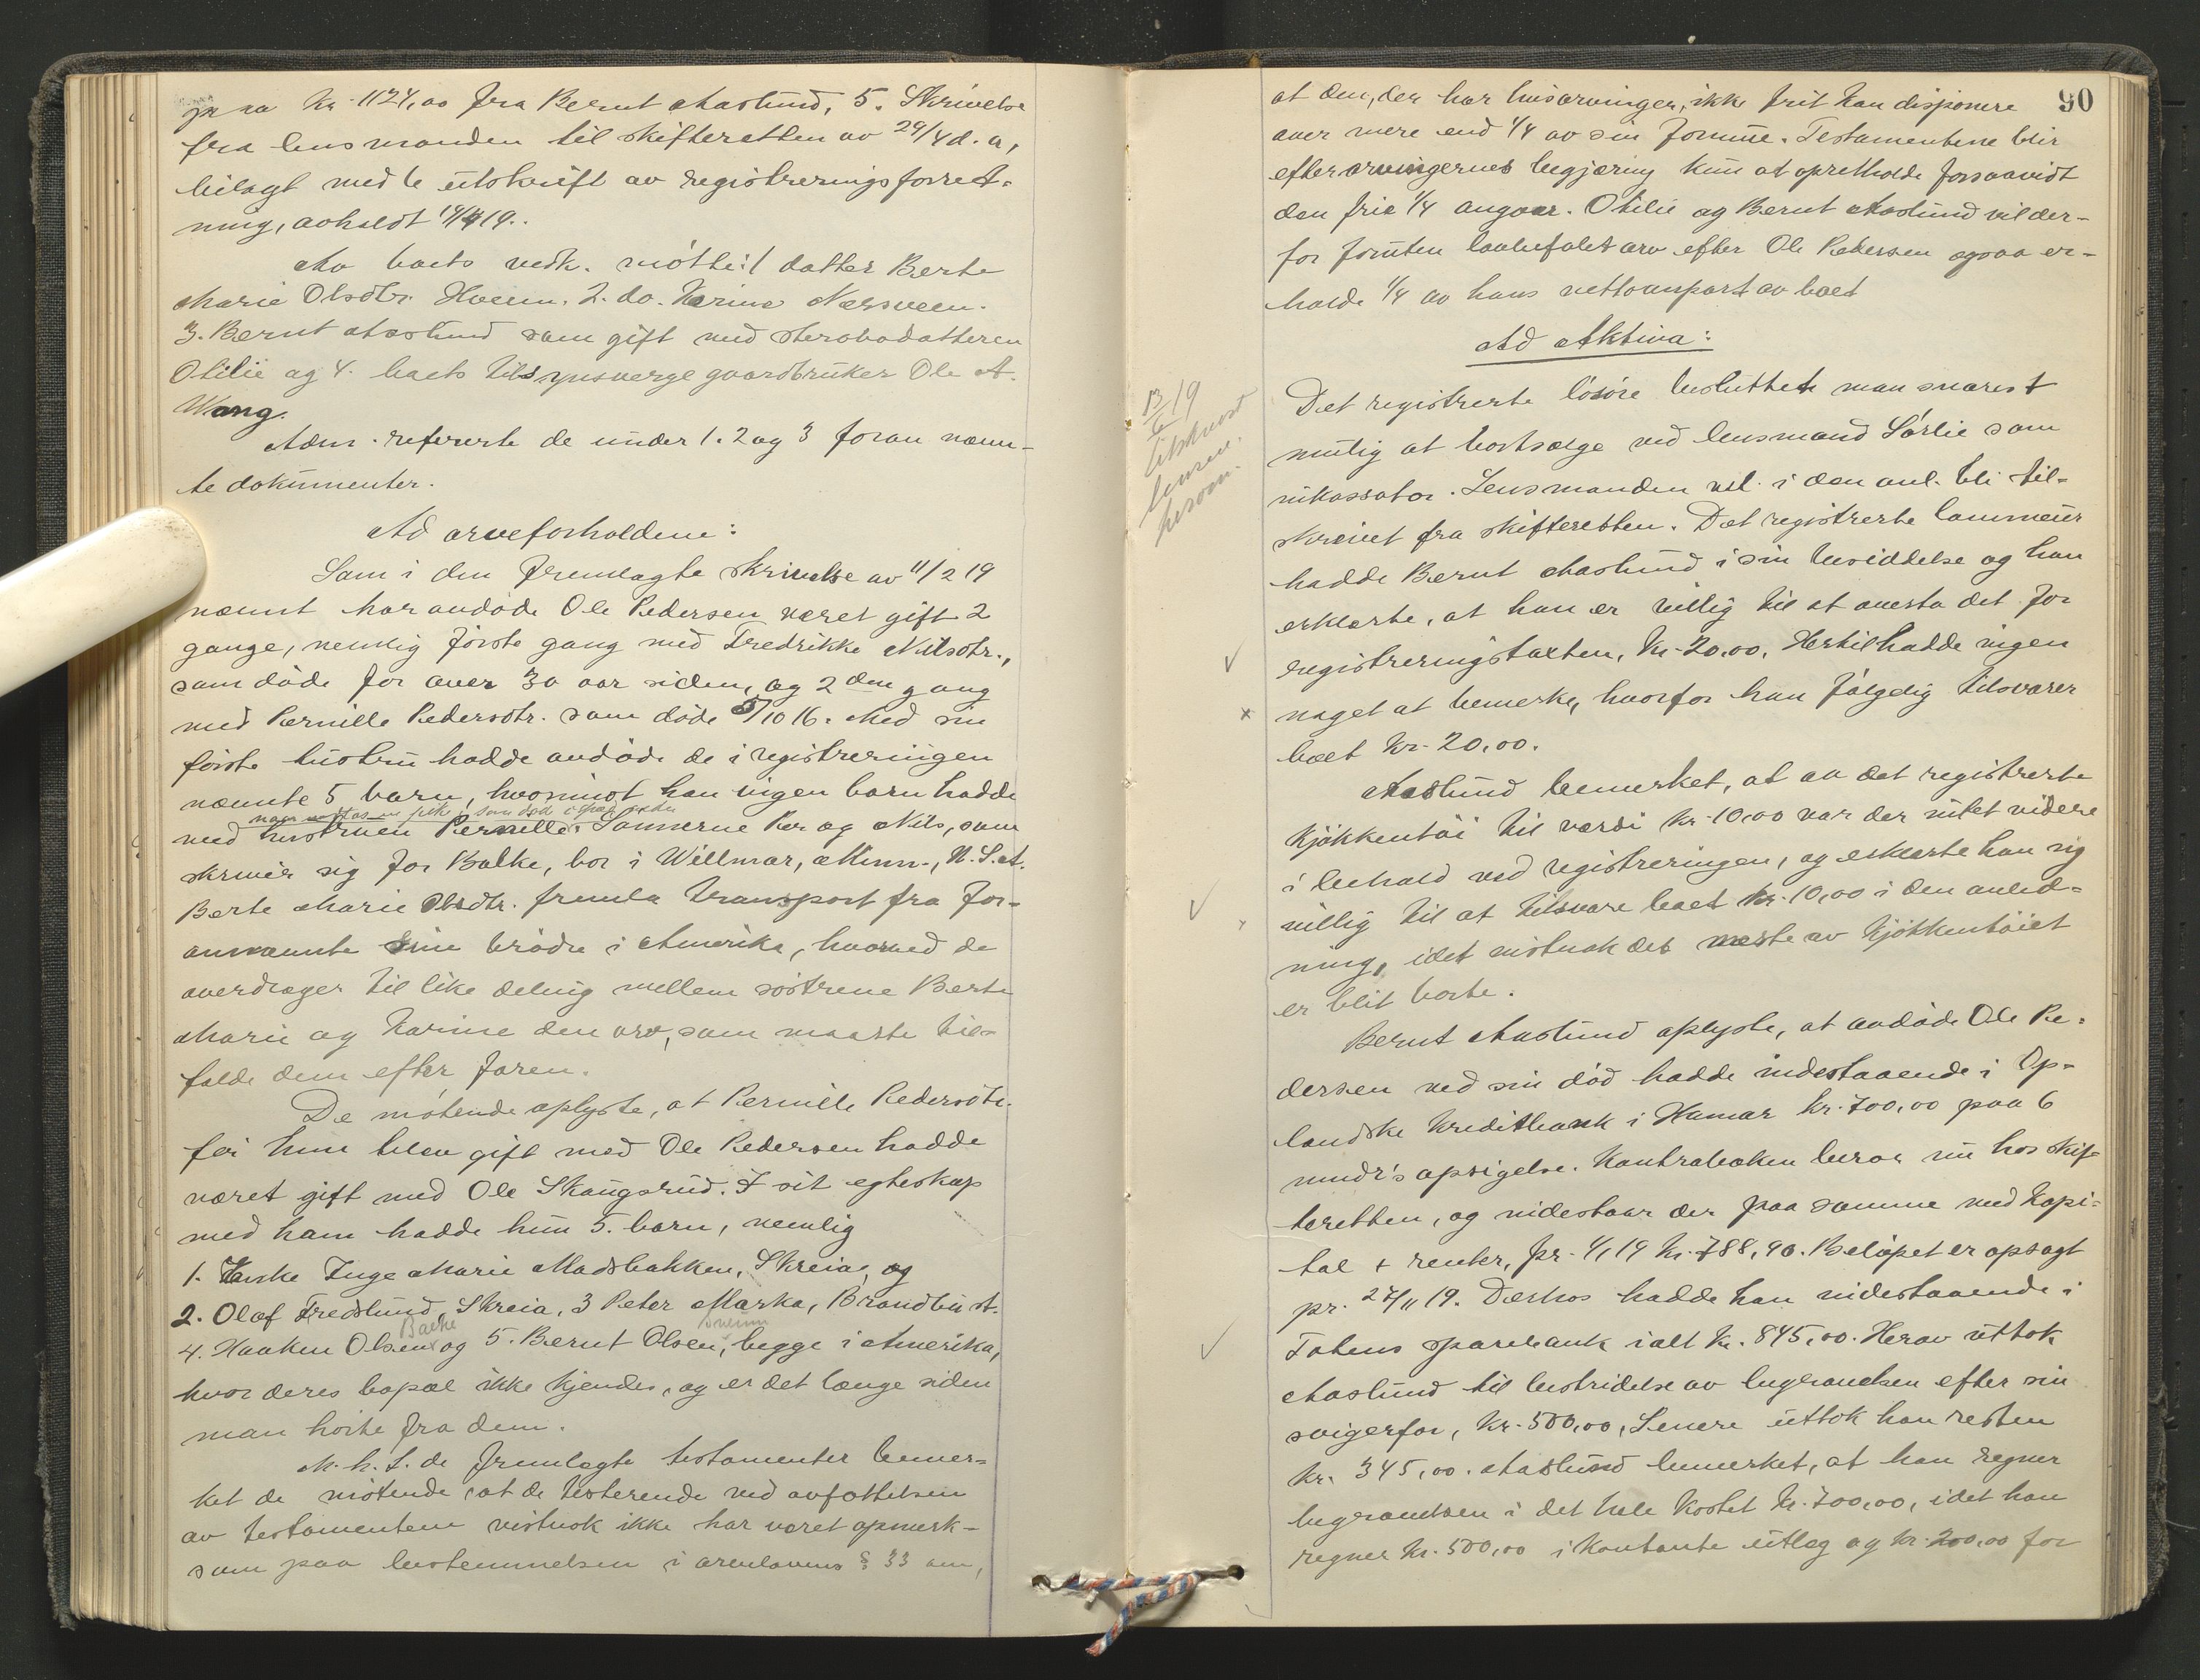 paa kr. 1124,00 fra Bernt Aaslund, 5. Skrivelse
fra lensmanden til skifteretten av 29/4 d.a,
bilagt med 6 utskrift av registreringsforret-
ning, avholdt 19.
Av boets vedk. møtte: 1 datter Berte
Marie Olsdtr. Hveem. 2. do. Karine Næsveen.
3. Bernt Aaslund som gift med sterbodatteren
Otilie og 4. boets tilsynsverge gaardbruker Ole A.
Wang.
Adm. refererte de under 1. 2 og 3 foran nævn-
te dokumenter.
Ad arveforholdene:
Som i den fremlagte skrivelse av 11/2 19
nævnt har avdøde Ole Pedersen været gift 2
gange, nemlig første gang med Fredrikke Nilsdtr.,
som døde for over 30 aar siden, og 2den gang
med Pernille Pedersdtr. som døde 5/10 16. Med sin
første hustru hadde avdøde de i registreringen
nævnte 5 barn, hvorimot han ingen barn hadde
med hustruen Pernille. Sønnerne Per og Nils, som
skriver sig for Balke, bor i Willmar, Minn., N.S.A.
Berte Marie Olsdtr. fremla transport fra for-
annævnte sine brødre i Amerika, hvorved de
overdrager til like deling mellem søstrene Berte
Marie og Karine den arv, som maatte til-
falde dem efter faren.
De møtende oplyste, at Pernille Pedersdtr.
før hun blev gift med Ole Pedersen hadde
været gift med Ole Skaugsrud. I sit egteskap
med ham hadde hun 5. barn, nemlig
1. Enke Inge Marie Madsbakken, Skreia, og
2. Olaf Fredslund, Skreia, 3 Peter Marka, Brandbu st.
Balke
4. Haaken Olsen og 5. Bernt Olsen, begge i Amerika,
hvor deres bopæl ikke kjendes, og er det længe siden
man hørte fra dem.
M.h.t. de fremlagte testamenter bemer-
ket de møtende, at de testerende ved avfattelsen
av testamentene vistnok ikke har været opmerk-
som paa bestemmelsen i arvelovens § 33 om,
90
at den, der har livsarvinger, ikke frit kan disponere
over mere end 1/4 av sin formue. Testamentene blir
efter arvingernes begjæring kun at opretholde forsaavidt
den frie 1/4 angaar. Otilie og Bernt Aaslund vil der-
for foruten lovbefalet arv efter Ole Pedersen ogsaa er-
holde 1/4 av hans nettoanpart av boet
Ad Aktiva:
13/6 19
tilskrevet
lensm.
Det registrerte løsøre besluttet man snarest
mulig at bortsælge ved lensmand Sørlie som
inkassator. Lensmanden vil i den anl. bli til-
skrevet fra skifteretten. Det registrerte lommeur
hadde Bernt Aaslund i sin besiddelse og han
erklærte, at han er villig til at overta det for
registreringstaxten, kr. 20,00. Hertil hadde ingen
noget at bemerke, hvorfor han følgelig tilsvarer
boet kr. 20,00.
Aaslund bemerket, at av det registrerte
kjøkkentøi til værdi kr. 10,00 var der intet videre
i behold ved registreringen, og erklærte han sig
villig til at tilsvare boet kr. 10,00 i den anled-
ning, idet vistnok det meste av kjøkkentøiet
er blit borte.
Bernt Aaslund oplyste, at avdøde Ole Pe-
dersen ved sin død hadde indestaaende i Op-
landske Kreditbank i Hamar kr. 700,00 paa 6
mndr's opsigelse. Kontraboken beror nu hos skif-
teretten, og indestaar der paa samme med kapi-
tal + renter, pr. 1/1 19 kr. 788,90. Beløpet er opsagt
pr. 27/11 19. Derhos hadde han indestaaende i
Totens sparebank ialt kr. 845,00. Herav uttok
Aaslund til bestridelse av begravelsen efter sin
svigerfar, kr. 500,00, Senere uttok han resten
kr. 345,00. Aaslund bemerket, at han regner
begravelsen i det hele kostet kr. 700,00, idet han
regner kr. 500,00 i kontante utlæg og kr. 200,00 for